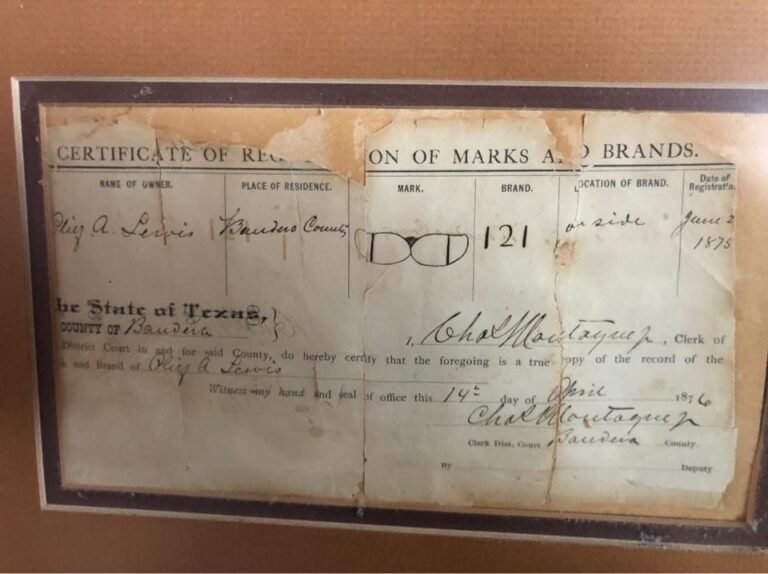 CERTIFICATE OF REG ON OF MARKS A D BRANDS.
NAME OF OWNER. PLACE OF RESIDENCE. MARK. BRAND. OCATION OF BRAND. Date of Registrat'n.
A. Lewis Bandera County 121 side June 2
1875
he State of Texas,
COUNTY OF Bandera
Chas Montague Jr, Clerk of
District Court in and for said County, do hereby certify that the foregoing is a true copy of the record of the
k and Brand of A Lewis
Witness my hand and seal of office this 14th day of April 1876
Chas Montague Jr
Clerk Dist. Court Bandera County.
By Deputy